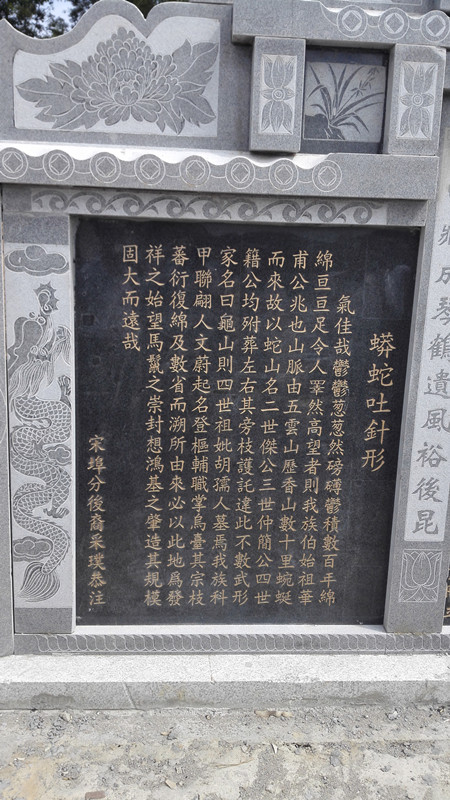 成琴鶴遺風裕後昆
蟒蛇吐針形
氣佳哉鬱鬱葱葱然磅礴鬱積數百年綿
綿亘亘足令人睪然高望者則我族伯始祖華
甫公兆也山脈由五雲山歷香山數十里蜿蜒
而來故以蛇山名二世傑公三世仲簡公四世
籍公均祔葬左右其旁枝護託達此不數武形
家名曰龜山則四世祖妣胡孺人墓焉我族科
甲聯翩人文蔚起名登樞輔職掌烏臺其宗枝
蕃衍復綿及數省而溯所由來必以此地爲發
祥之始望馬鬣之崇封想鴻基之肇造其規模
固大而遠哉
宋埠分後裔采璞恭注